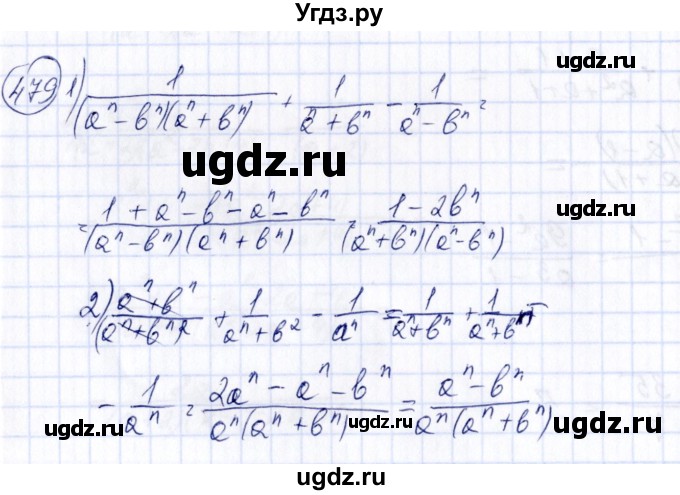 Угдз.ру
ugdz.ru ugdz.ru
479 1) 1/((aⁿ - bⁿ)(aⁿ + bⁿ)) + 1/(aⁿ + bⁿ) - 1/(aⁿ - bⁿ) =
ugdz.ru ugdz.ru
= (1 + aⁿ - bⁿ - aⁿ - bⁿ)/((aⁿ - bⁿ)(aⁿ + bⁿ)) = (1 - 2bⁿ)/((aⁿ + bⁿ)(aⁿ - bⁿ))
ugdz.ru
2) (aⁿ + bⁿ)/(aⁿ + bⁿ)² + 1/(aⁿ + b²) - 1/aⁿ = 1/(aⁿ + bⁿ) + 1/(aⁿ + bⁿ) -
ugdz.ru ugdz.ru
- 1/aⁿ = (2aⁿ - aⁿ - bⁿ)/(aⁿ(aⁿ + bⁿ)) = (aⁿ - bⁿ)/(aⁿ(aⁿ + bⁿ))
ugdz.ru ugdz.ru
ugdz.ru